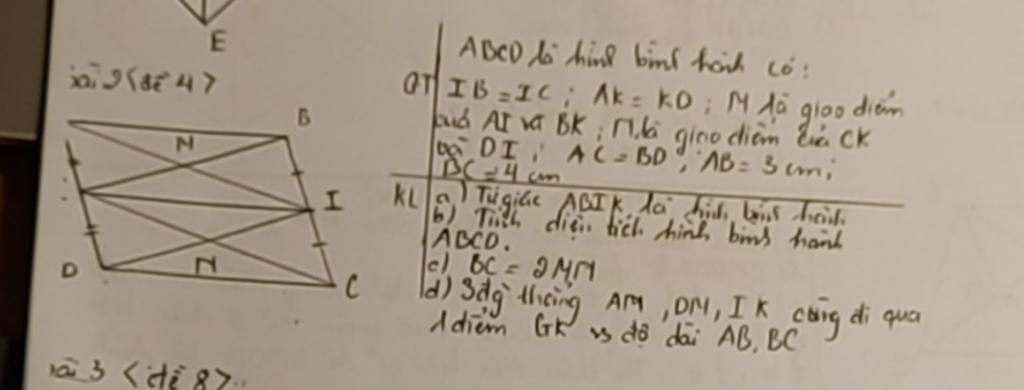 E
Bài 2 <đề 4>
ABCD là hình bình hành có:
GT IB = IC; AK = KD; M là giao điểm
của AI và BK; N là giao điểm của CK
và DI; AC = BD; AB = 3 cm;
BC = 4 cm
KL a) Tứ giác ABIK là hình bình hành
b) Tính diện tích hình bình hành
ABCD.
c) BC = 2MN
d) 3 đg thẳng AM, DM, IK cùng đi qua
1 điểm GK vs độ dài AB, BC
B
M
I
D
N
C
Bài 3 <đề 8>